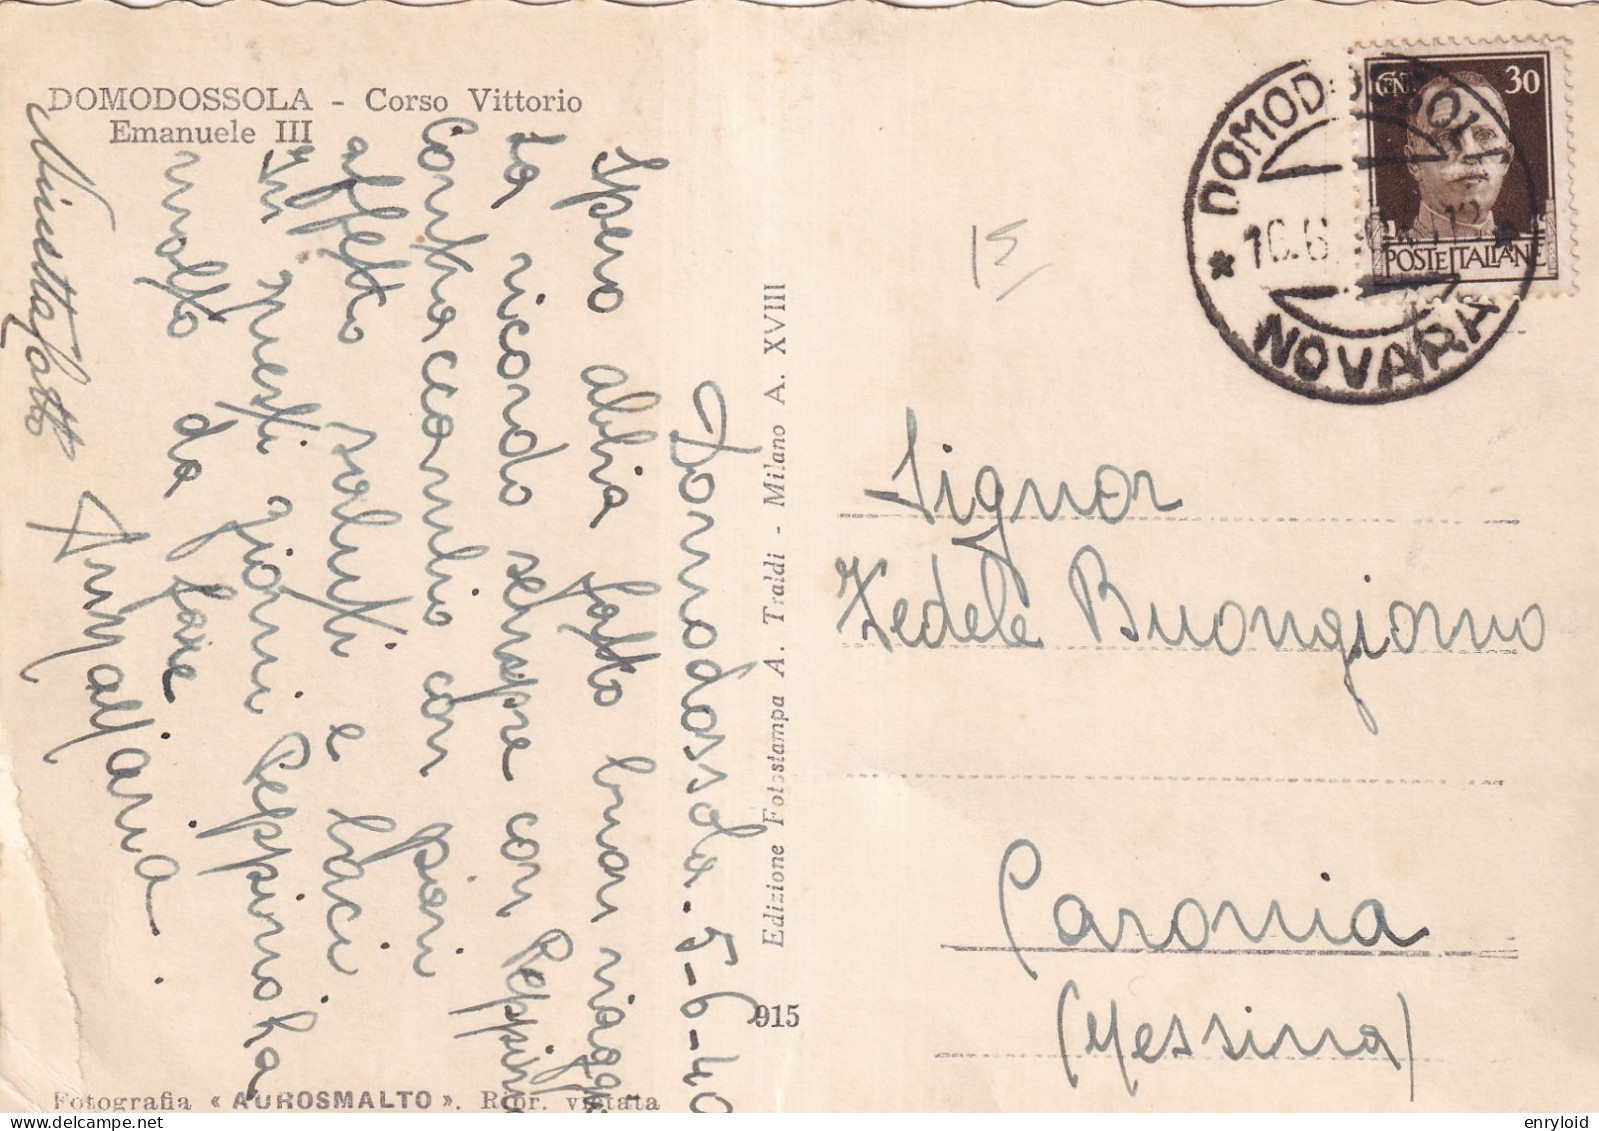 DOMODOSSOLA - Corso Vittorio
Emanuele III
Domodossola. 5-6-40
Spero abbia fatto buon viaggio
La ricordo sempre con Peppino
Contraccambio con
affetto saluti e baci
In questi giorni Peppino ha
molto da fare
Annamaria.
Edizione Fotostampa A. Traldi - Milano A. XVIII
915
Fotografia « AUROSMALTO ». Ripr. vietata
15
CENT. 30
POSTE ITALIANE
DOMODOSSOLA
* 10.6. 12 *
NOVARA
Signor
Fedele Buongiorno
Caronia
(Messina)
enryloid
delcampe.net